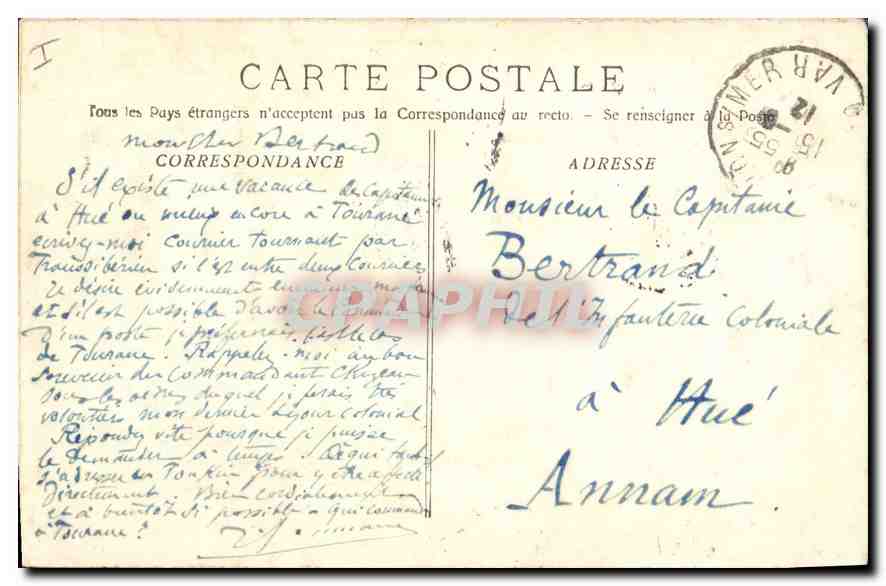 I
CARTE POSTALE
Tous les Pays étrangers n'acceptent pas la Correspondance au recto. - Se renseigner à la Poste
Mon cher Bertrand
CORRESPONDANCE
S'il existe une vacance de Capitaine
à Hué ou mieux encore à Tourane
écrivez-moi courrier tournant par
Transsibérien si l'est entre deux courriers
Je désire évidemment
et s'il est possible d'avoir le
d'un poste je préférerais
de Tourane. Rappelez-moi au bon
souvenir du Commandant
sous les ordres duquel je ferais très
volontiers mon dernier séjour colonial
Répondez vite pour que je puisse
le demander à temps. à qui faut-il
s'adresser au Tonkin pour y être affecté
directement. Bien cordialement
et à bientôt si possible. Qui commande
à Tourane?
ADRESSE
Monsieur le Capitaine
Bertrand
de l'Infanterie Coloniale
à Hué
Annam
S/MER VAR
CRAPHIL